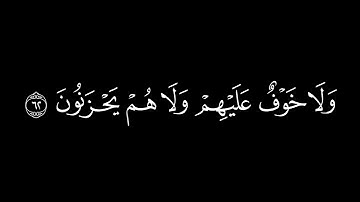 وَلَا خَوْفٌ عَلَيْهِمْ وَلَا هُمْ يَحْزَنُونَ ٦٢